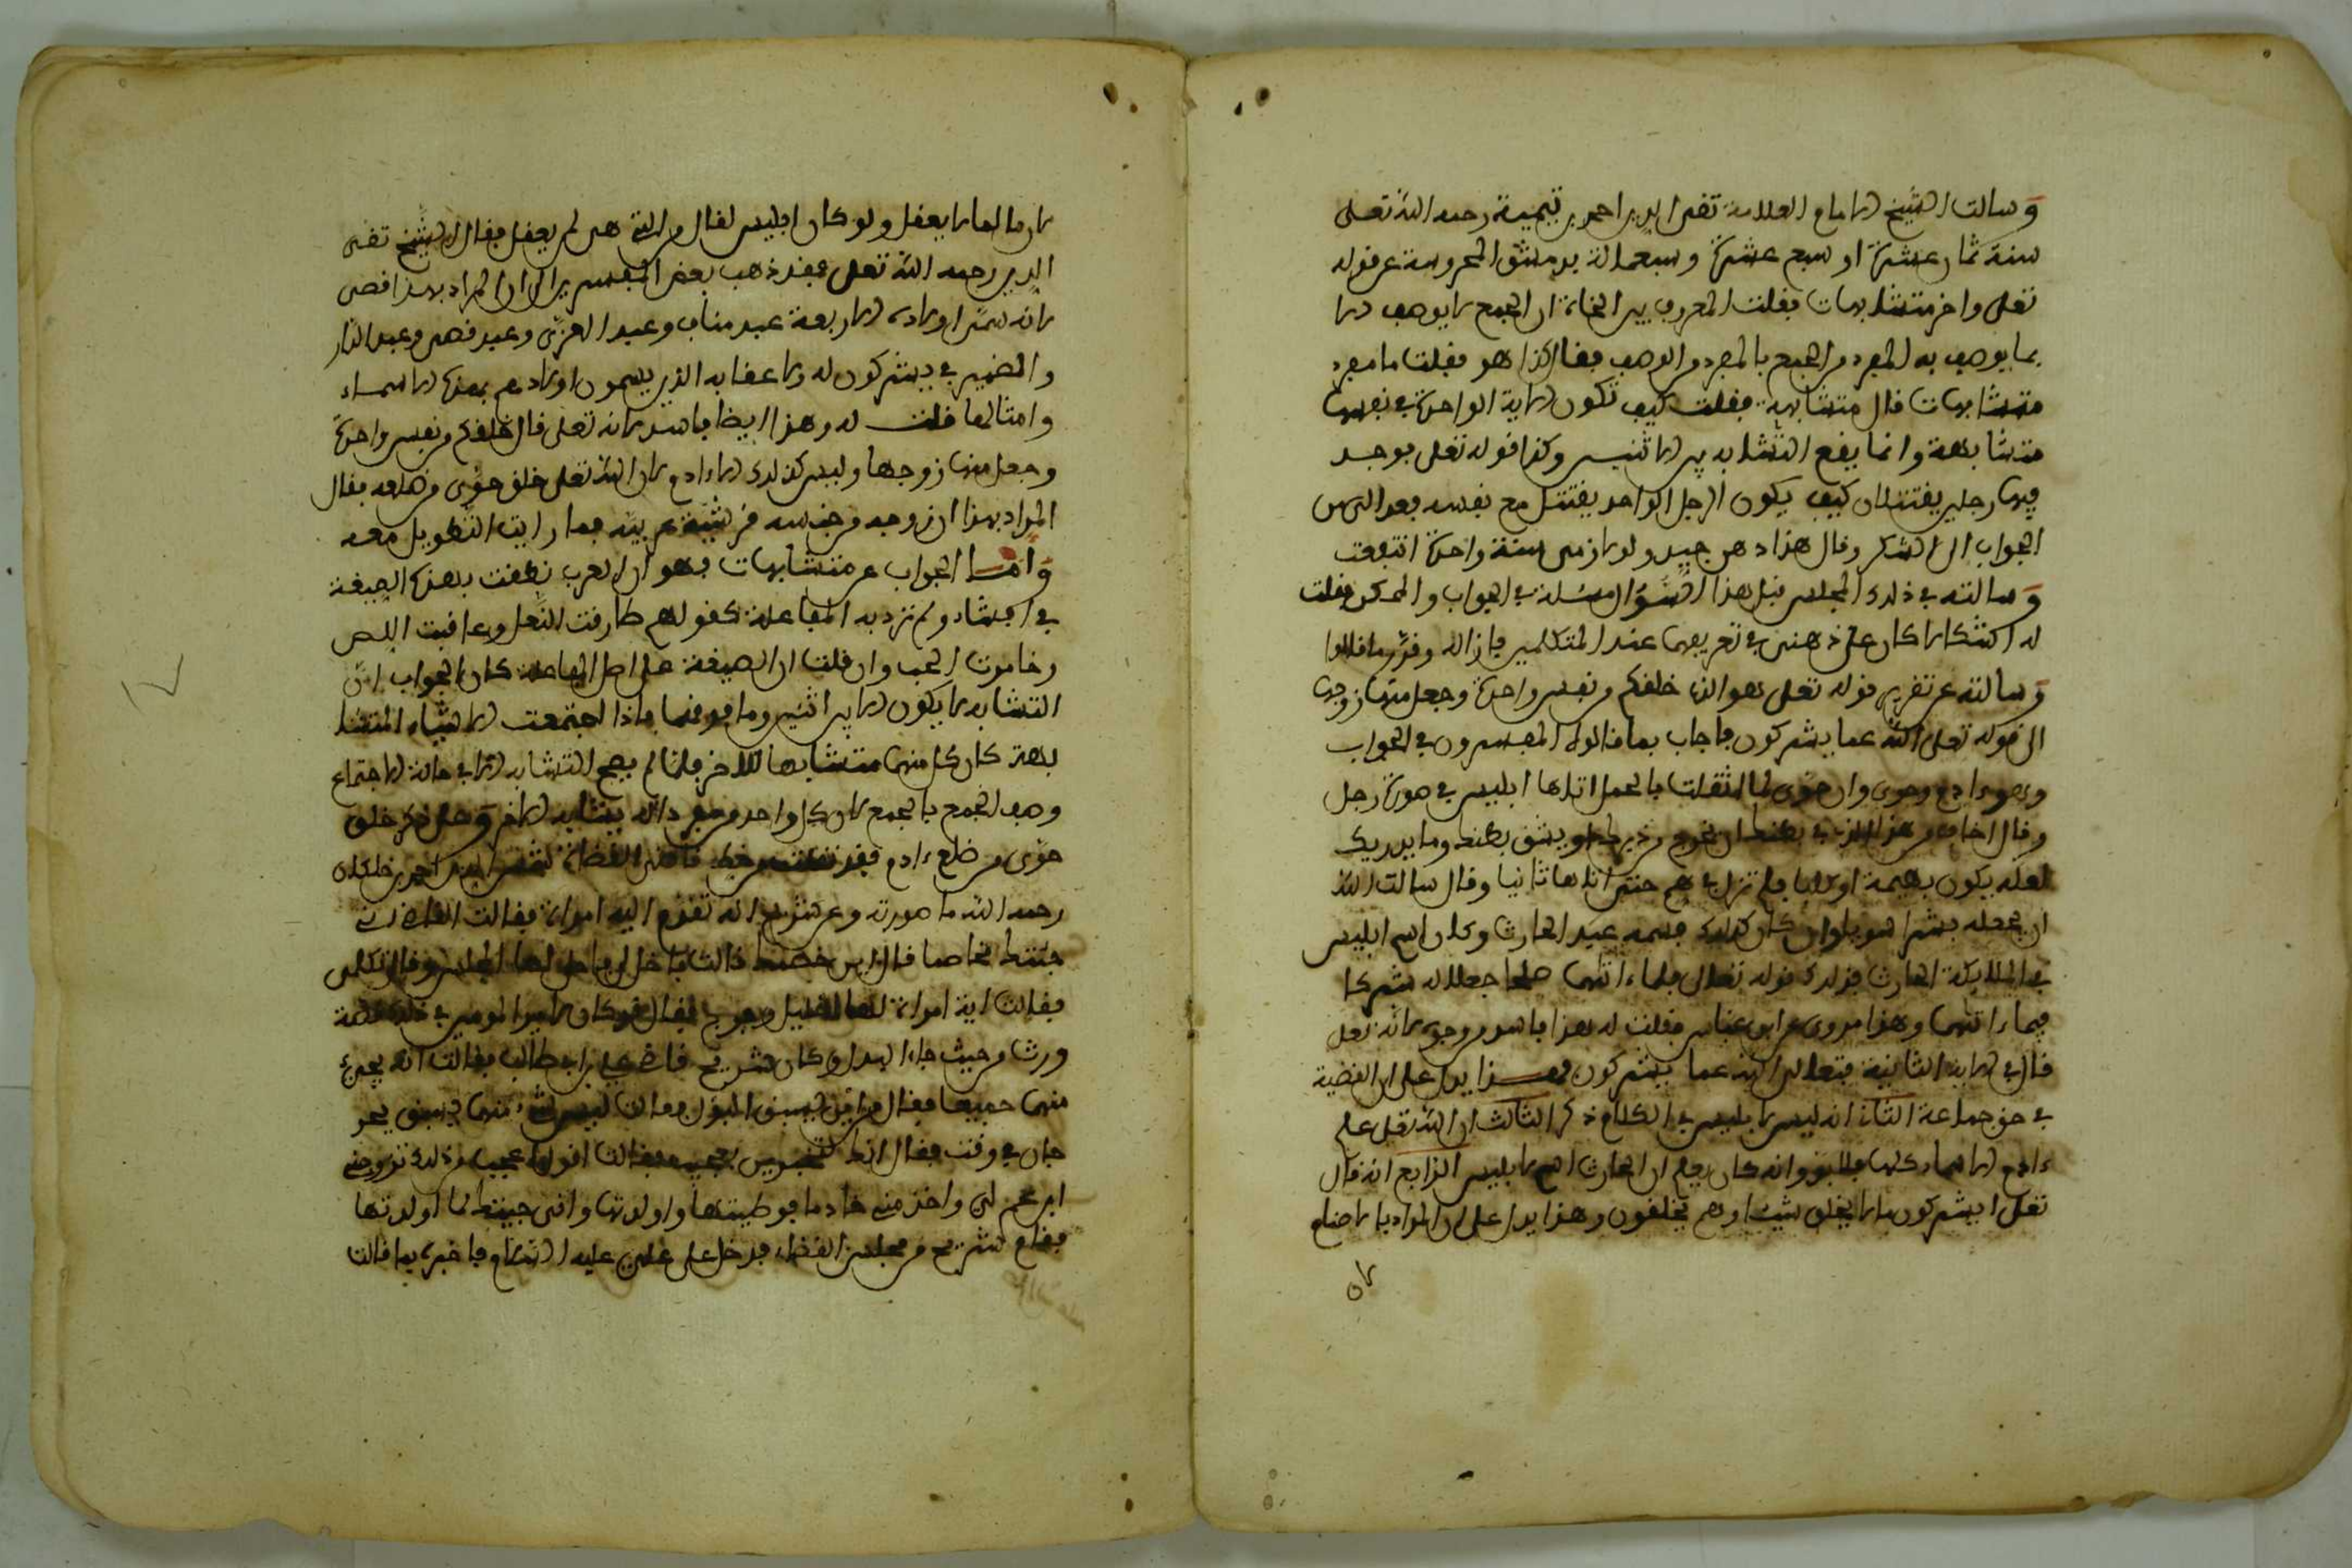 وسالت الشيخ الامام العلامة تقي الدين احمد بن تيمية رحمه الله تعلى
سنة ثمان عشرة او سبع عشرة وسبعمائة بدمشق المحروسة عن قوله
تعلى واخر متشابهات فقلت المعروف بين النحاة ان الجمع لا يوصف الا
بما يوصف به المفرد من الجمع بالمفرد من الوصف فقال كذا هو فقلت ما مفرد
متشابهات قال متشابهة فقلت كيف تكون الاية الواحدة في نفسها
متشابهة وانما يقع التشابه بين الاثنين وكذا قوله تعلى فوجد
فيها رجلين يقتتلان كيف يكون الرجل الواحد يقتتل مع نفسه فعدل من
الجواب الى الشكر وقال هذا ذهن جيد ولو لازمني سنة واحدة انتفعت
وسالته في ذلك المجلس قبل هذا السؤال مسئلة في الواجب والممكن فقلت
له اشكالا كان على ذهني في تعريفهما عند المتكلمين فازاله وقرر ما قالوا
وسالته عن تفسير قوله تعلى هو الذي خلقكم من نفس واحدة وجعل منها زوجها
الى قوله تعلى الله عما يشركون فاجاب بما قاله المفسرون في الجواب
وهو ادم وحوى وان حوى لما اثقلت بالحمل اتاها ابليس في صورة رجل
وقال اخاف من هذا الذي في بطنك ان يخرج من دبرك او يشق بطنك وما يدريك
لعله يكون بهيمة او كلبا فلم تزل في هم حتى اتاها ثانيا وقال سالت الله
ان يجعله بشرا سويا وان كان كذلك فسميه عبد الحارث وكان اسم ابليس
في الملايكة الحارث فذلك قوله تعلى فلما ءاتاهما صلحا جعلا له شركا
فيما ءاتاهما وهذا مروي عن ابن عباس فقلت له هذا فاسد من وجوه لانه تعلى
قال في الاية الثانية فتعلى الله عما يشركون فهذا يدل على ان القضية
في حق جماعة الثاني انه ليس لابليس في الكلام ذكر الثالث ان الله تعلى علم
ءادم الاسماء كلها فلابد وانه كان يعلم ان الحارث اسم لابليس الرابع انه قال
تعلى ايشركون ما لا يخلق شيئا وهم يخلقون وهذا يدل على ان المراد به الاصنام
لان
لان ما لما لا يعقل ولو كان ابليس لقال من التي هي لم يعقل فقال الشيخ تقي
الدين رحمه الله تعلى فقد ذهب بعض المفسرين الى ان المراد بهذا قصي
لانه سمى اولاده الاربعة عبد مناف وعبد العزى وعبد قصي وعبد الدار
والضمير في يشركون له ولاعقابه الذين يسمون اولادهم بهذه الاسماء
وامثالها فقلت له وهذا ايضا فاسد لانه تعلى قال خلقكم من نفس واحدة
وجعل منها زوجها وليس كذلك الا ءادم لان الله تعلى خلق حوى من ضلعه فقال
المراد بهذا ان زوجه من جنسه قرشية عربية فما رايت التطويل معه
واما الجواب عن متشابهات فهو ان العرب نطقت بهذه الصيغة
في اشياء ولم ترد به المفاعلة كقولهم طارقت النعل وعاقبت اللص
وخامرت الحب وان قلت ان الصيغة على اصل المفاعلة كان الجواب ان
التشابه لا يكون الا بين اثنين وما فوقهما فاذا اجتمعت الاشياء المتشا
بهة كان كل منهما متشابها للاخر فلما لم يصح التشابه الا في حالة الاجتماع
وصف الجمع بالجمع لان كل واحد من مفرداته يشابه الاخر وعلى ذكر خلق
حوى من ضلع ءادم فقد نقلت من خط قاضي القضاة شمس الدين احمد بن خلكان
رحمه الله ما صورته وعن شريح انه تقدم اليه امراة فقالت القاضي اني
جئتك مخاصما قال اين خصمك قالت فاخل لي فاخلى لها المجلس وقال تكلمي
فقالت اني امراة لها احليل وفرج فقال قد كان لامير المومنين في هذا قصة
ورث من حيث جاء البول وكان شريح قاضي علي بن ابي طالب فقالت انه يجيء
منهما جميعا فقال من اين يسبق البول فقالت ليس شيء منهما يسبق يجر
جان في وقت فقال انك لتخبرين بعجب فقالت اقول اعجب من ذلك تزوجني
ابن عم لي واخذ مني خادما فوطيتها واولدتها واني جيتك لما اولدتها
فقام شريح من مجلس القضاء فدخل على علي عليه السلام فاخبره بما قالت